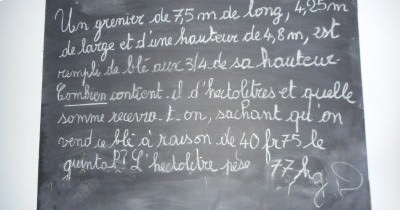 Un grenier de 7,5 m de long, 4,25m
de large et d'une hauteur de 4,8 m, est
rempli de blé aux 3/4 de sa hauteur.
Combien contient-il d'hectolitres et quelle
somme recevra-t-on, sachant qu'on
vend ce blé à raison de 40 fr75 le
quintal? L'hectolitre pèse 77kg